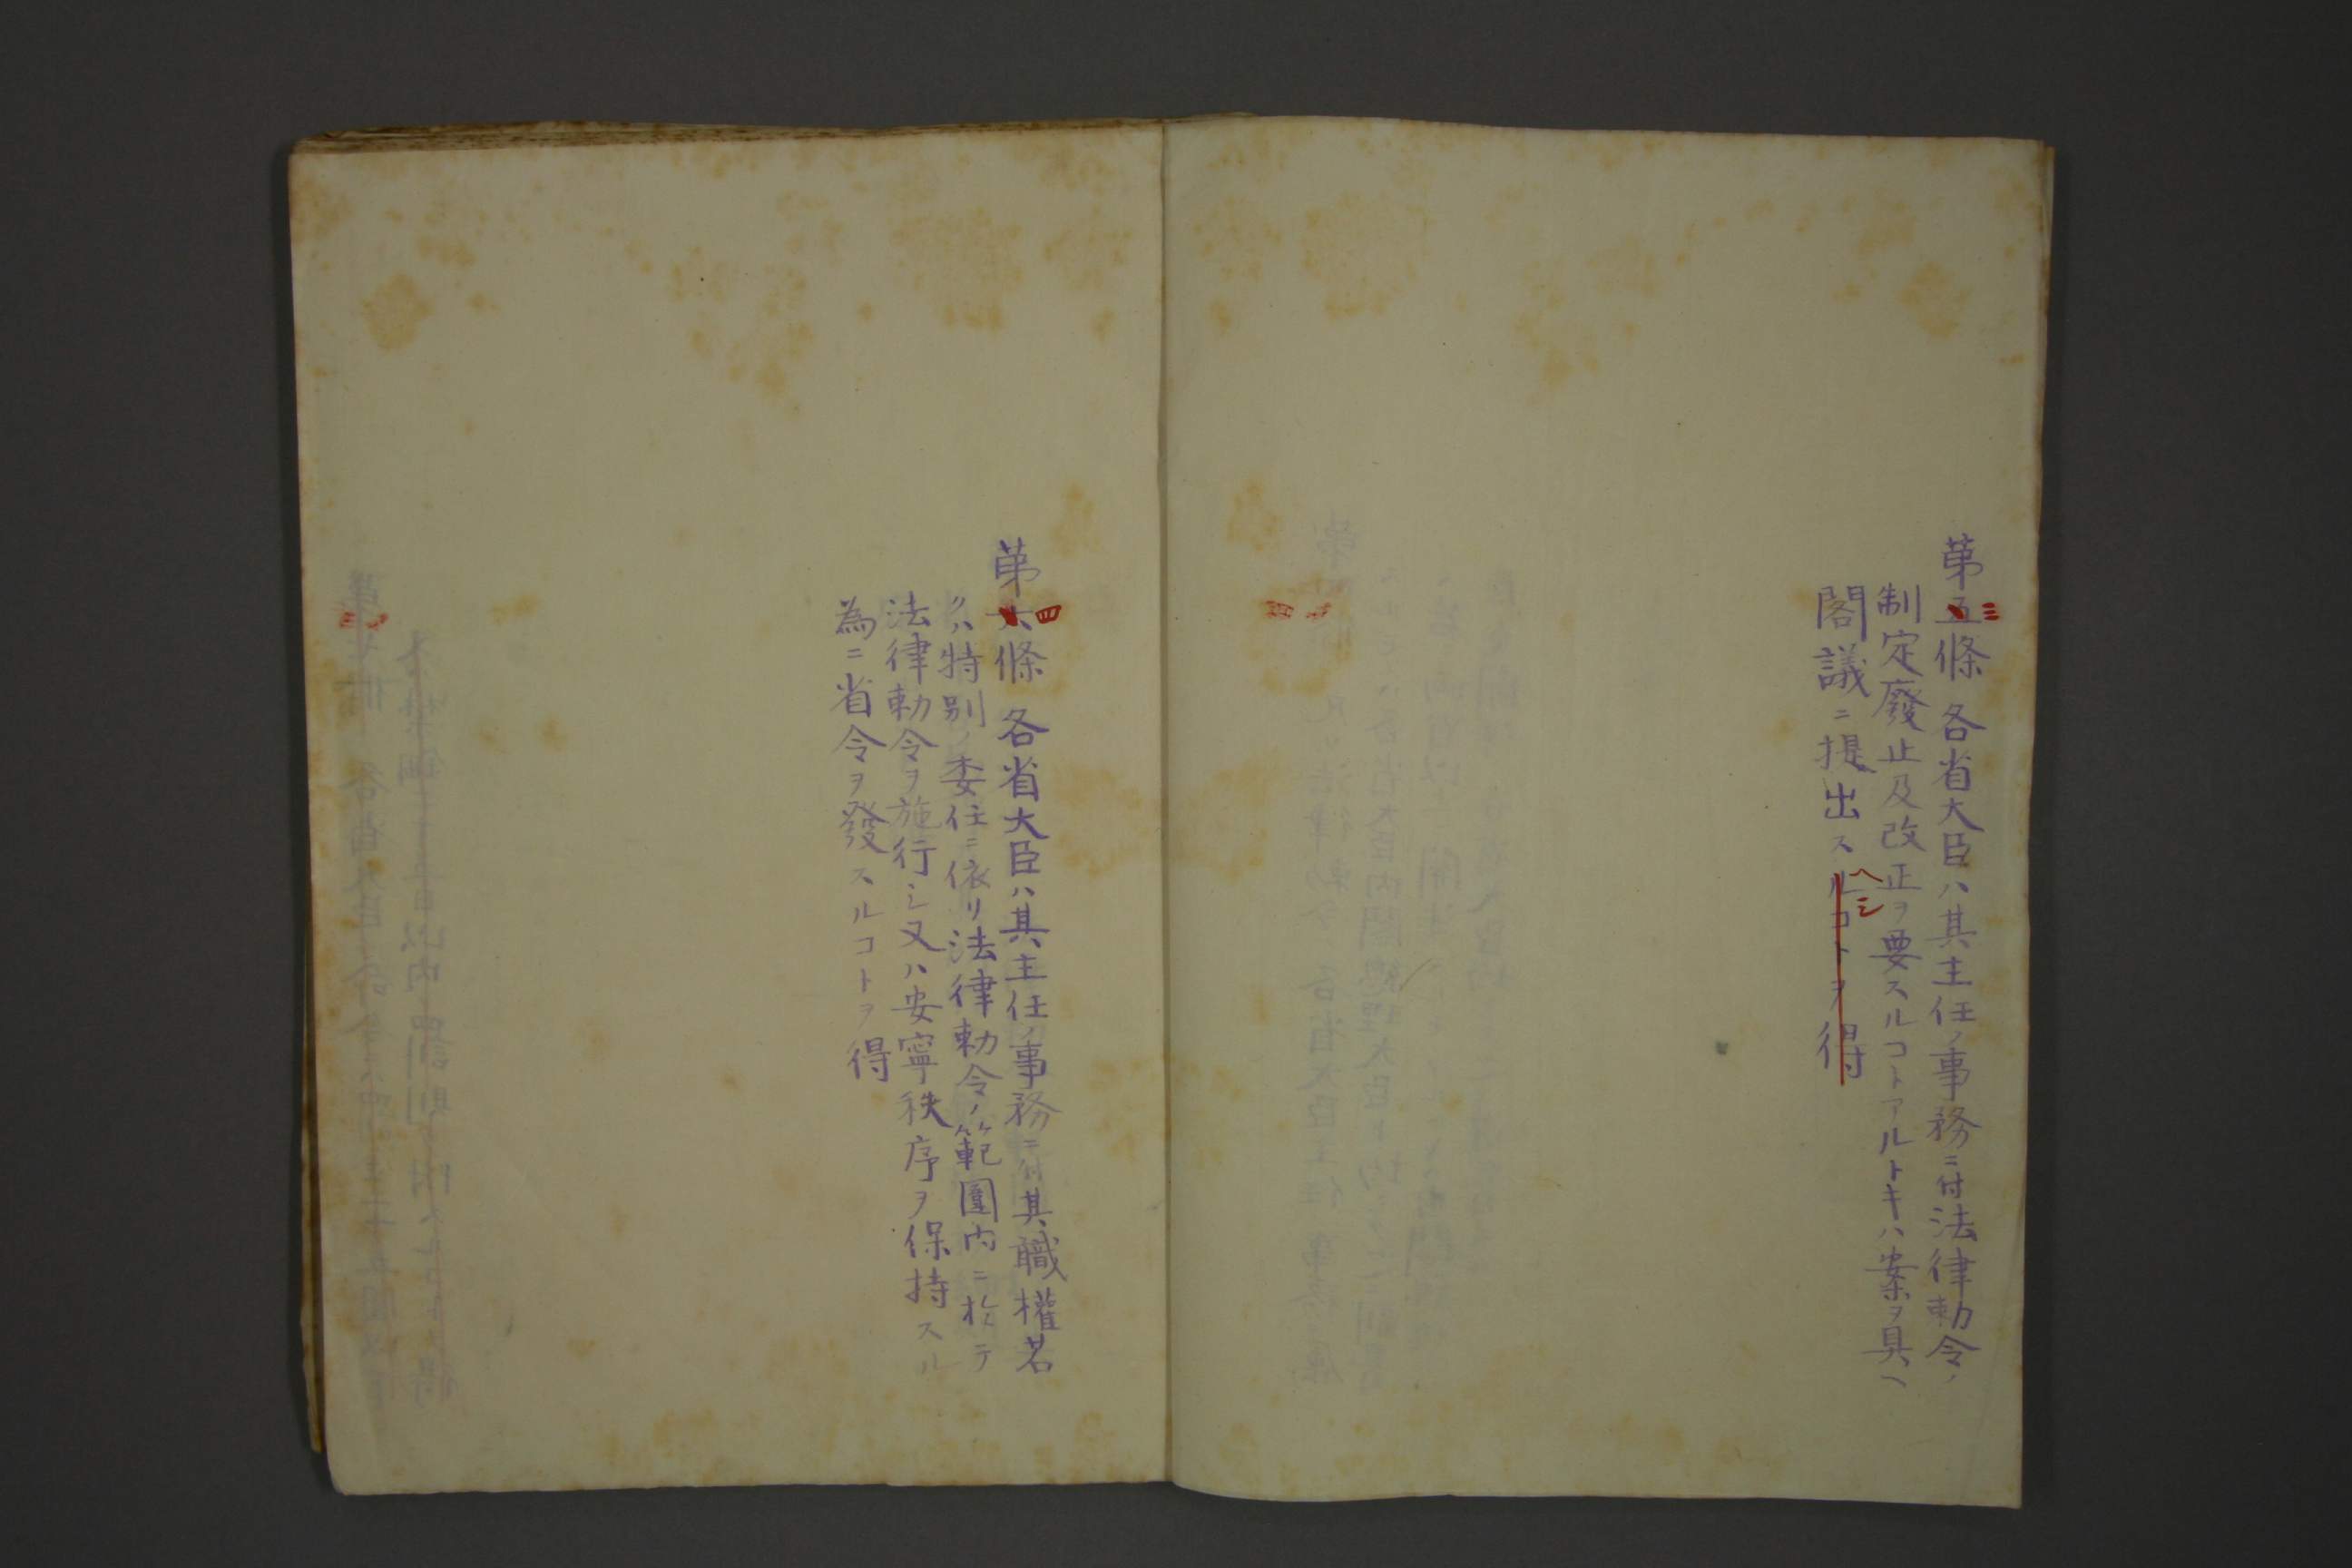 第五三條 各省大臣ハ其主任ノ事務ニ付法律勅令ノ
制定廢止及改正ヲ要スルコトアルトキハ案ヲ具ヘ
閣議ニ提出スルコトヲ得ヘシ
第六四條 各省大臣ハ其主任ノ事務ニ付其職權若
クハ特別ノ委任ニ依リ法律勅令ノ範圍内ニ於テ
法律勅令ヲ施行シ又ハ安寧秩序ヲ保持スル
為ニ省令ヲ發スルコトヲ得